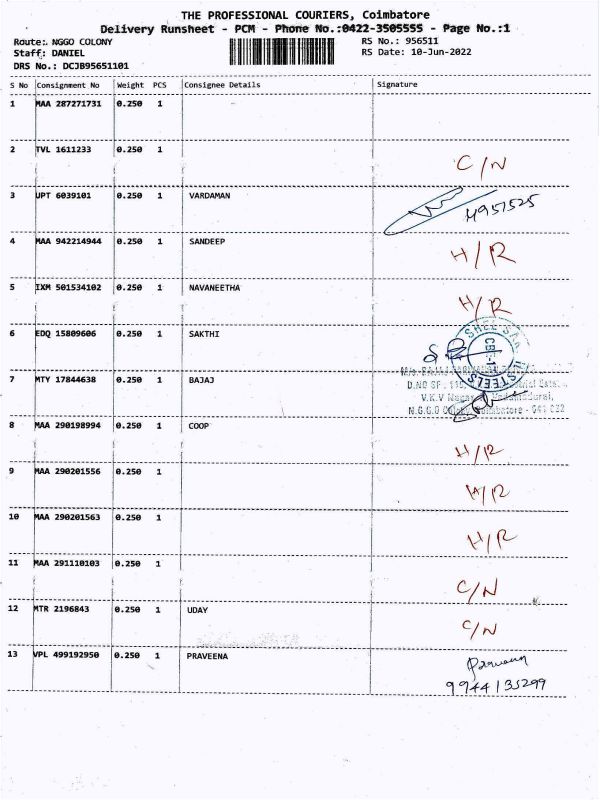 THE PROFESSIONAL COURIERS, Coimbatore
Delivery Runsheet - PCM - Phone No.:0422-3505555 - Page No.:1
Route:. NGGO COLONY RS No.: 956511
Staff: DANIEL RS Date: 10-Jun-2022
DRS No.: DCJB95651101
S No Consignment No Weight PCS Consignee Details Signature
1 MAA 287271731 0.250 1
2 TVL 1611233 0.250 1
C/N
3 UPT 6039101 0.250 1 VARDAMAN
4 MAA 942214944 0.250 1 SANDEEP
H/R
5 IXM 501534102 0.250 1 NAVANEETHA
H/R
6 EDQ 15809606 0.250 1 SAKTHI
7 MTY 17844638 0.250 1 BAJAJ
D.NO SF
V.K.V
N.G.G.O Coimbatore - 641 022
8 MAA 290198994 0.250 1 COOP
H/R
9 MAA 290201556 0.250 1
H/R
10 MAA 290201563 0.250 1
H/R
11 MAA 291110103 0.250 1
C/N
12 MTR 2196843 0.250 1 UDAY
C/N
13 VPL 499192950 0.250 1 PRAVEENA
9944135299